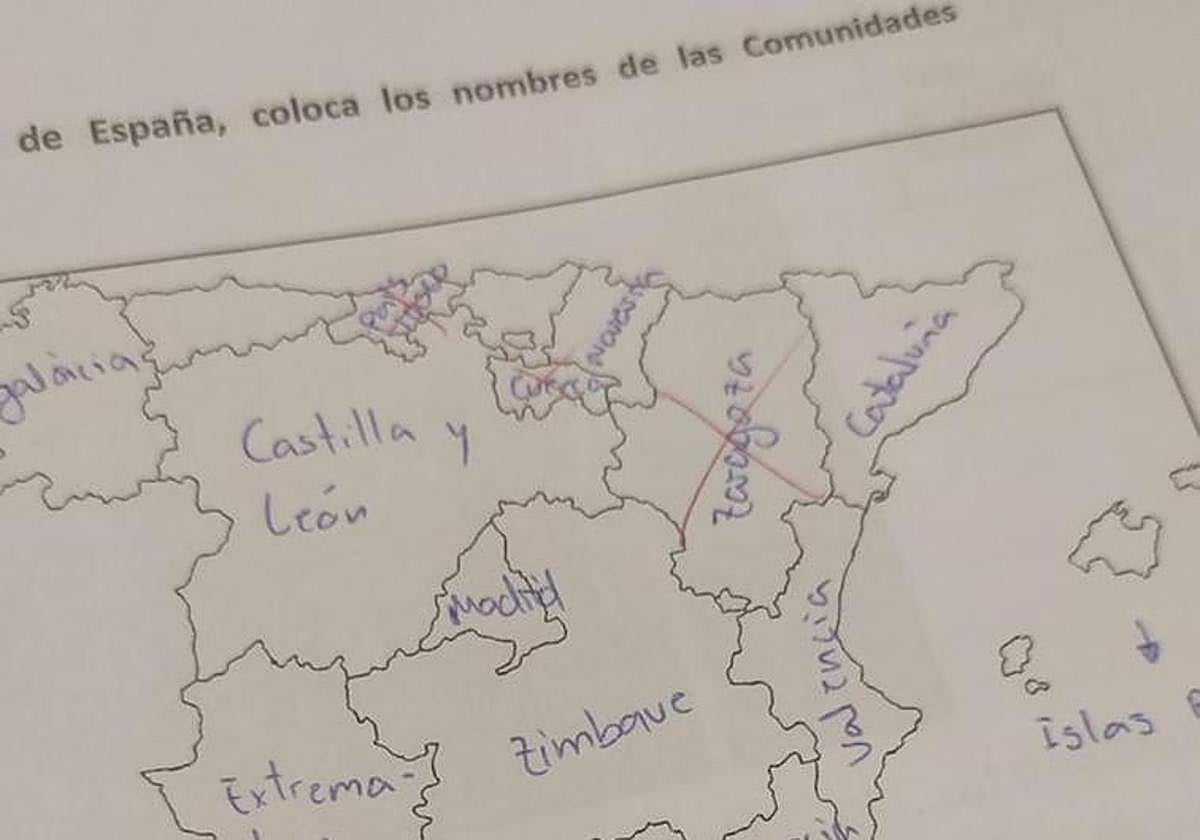 de España, coloca los nombres de las Comunidades
País
Vasco
Navarra
galácia
Cuenca
Cataluña
Castilla y
León
Zaragoza
Madrid
Valencia
Zimbaue
islas
Extrema-